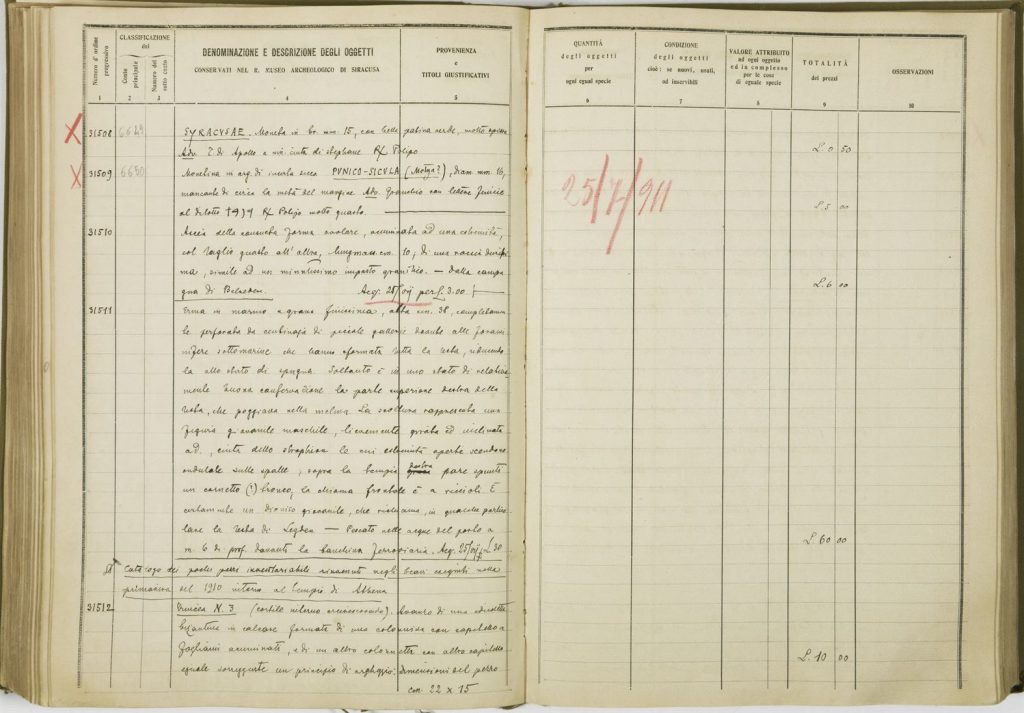 Numero d'ordine progressivo
CLASSIFICAZIONE del
Conto principale
Numero del sotto conto
DENOMINAZIONE E DESCRIZIONE DEGLI OGGETTI
CONSERVATI NEL R. MUSEO ARCHEOLOGICO DI SIRACUSA
PROVENIENZA
e
TITOLI GIUSTIFICATIVI
1 2 3 4 5
X 31508 6649 SYRACUSAE. Moneta in br. mm. 15, con bella patina verde, molto
Adv. T. di Apollo a cinta di stephane R/ Polipo
X 31509 6650 Monetina in arg. di incerta zecca PUNICO-SICULA (Motya?), diam. mm. 16,
mancante di circa la metà del margine Adv. Granchio con lettere fenicie
al disotto R/ Polipo molto guasto.
31510 Accia della consueta forma ovolare, acuminata ad una estremità,
col taglio guasto all'altra, lungh. mass. cm. 10; di una roccia durissi
ma, simile ad un minutissimo impasto granitico. — Dalla campa
gna di Belvedere. Acq. 25/VII per L. 3.00
31511 Erma in marmo a grana finissima, alta cm. 38, completamen
te perforata da centinaja di piccole gallerie dovute alle forami
nifere sottomarine che hanno sformata tutta la testa, riducendo
la allo stato di spugna. Soltanto è in uno stato di relativa
mente buona conservazione la parte superiore destra della
testa, che poggiava nella melma. La scultura rappresenta una
figura giovanile maschile, lievemente girata ed inclinata
ad , cinta dello strophion le cui estremità aperte scendono
ondulate sulle spalle, sopra la tempia destra pare spunti
un cornetto (?) bronco, la chioma frontale è a riccioli. È
certamente un dioniso giovanile, che richiama, in qualche partico
lare la testa di Leyden — Pescato nelle acque del porto a
m. 6 di prof. davanti la banchina ferroviaria. Acq. 25/VII L. 30
Catalogo dei pochi pezzi inventariabili rinvenuti negli scavi eseguiti nella
primavera del 1910 intorno al tempio di Athena
31512 Trincea N. 3 (cortile interno arcivescovado). Avanzo di una
bizantina in calcare formata di una colonnina con capitello a
fogliami acuminati, e di un altra colonnetta con altro capitello
eguale sorreggente un principio di archeggio; dimensioni del pezzo
cm. 22 x 15
QUANTITÀ
degli oggetti
per
ogni egual specie
CONDIZIONE
degli oggetti
cioè: se nuovi, usati,
od inservibili
VALORE ATTRIBUITO
ad ogni oggetto
ed in complesso
per le cose
di eguale specie
TOTALITÀ
dei prezzi
OSSERVAZIONI
6 7 8 9 10
L. 0 50
25/7/911
L. 5 00
L. 6 00
L. 60 00
L. 10 00